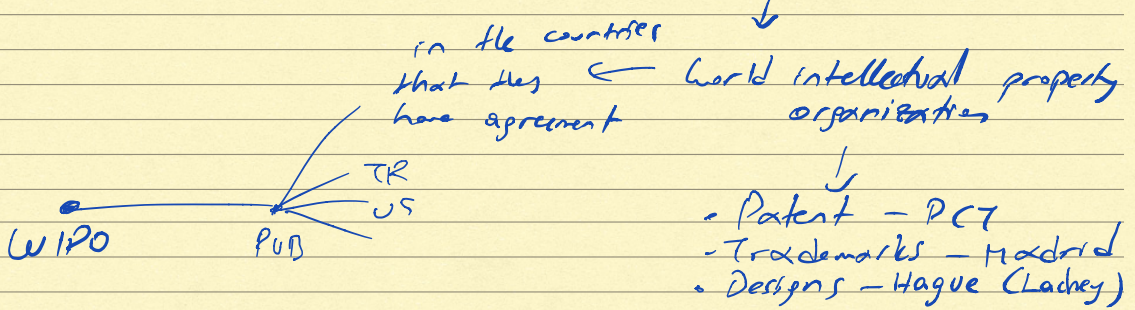 in the countries
that they
have agreement
World intellectual property
organization
TR
US
WIPO
PUB
• Patent - PCT
- Trademarks - Madrid
• Designs - Hague (Lachey)